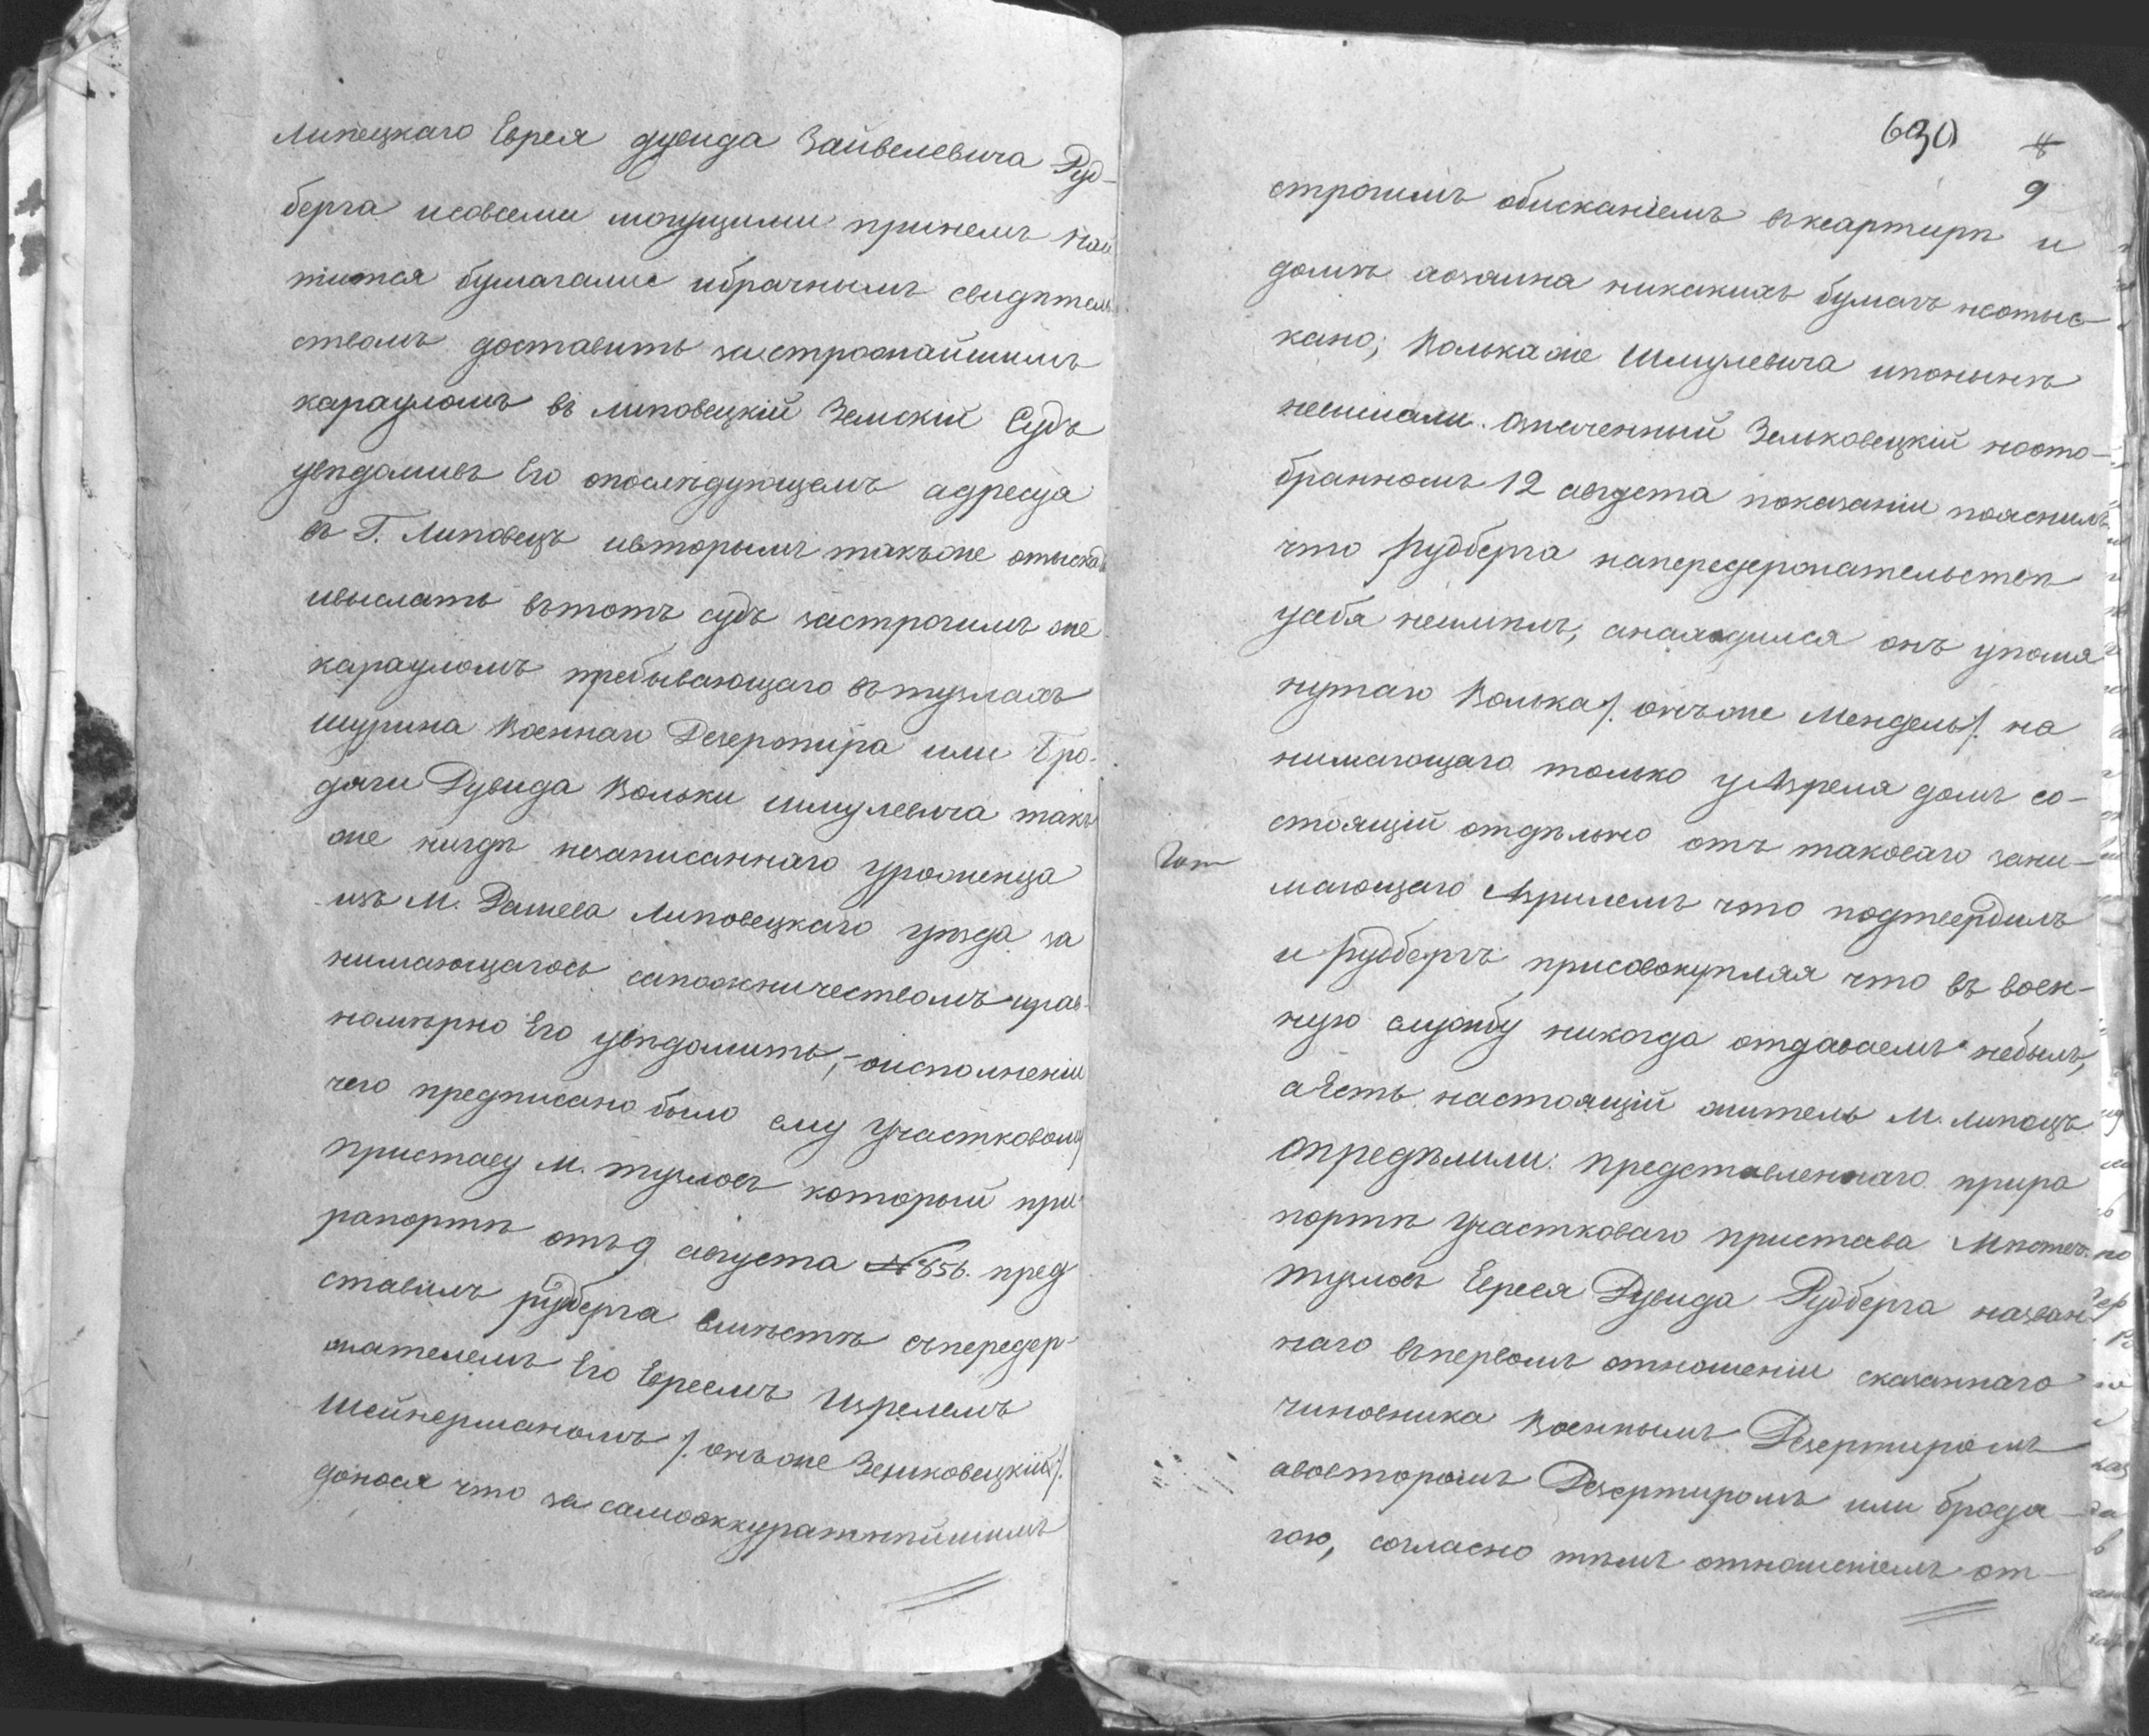 Липецкаго Еврея Дувида Зайвелевича Руд-
берга исовсеми могущими принемъ най
тится бумагамы ибрачнымъ свидѣтель
ствомъ доставить застрожайшимъ
карауломъ въ Липовецкій Земскій Судъ
увѣдомивъ Его опослѣдующемъ адресуя
въ Г. Липовецъ ивторымъ такъже отыскать
ивыслать вътотъ судъ застрогимъ же
карауломъ пребывающаго вътузлахъ
шурина Военнаго Дезертира или Бро-
дяги Дувида Вольки Шмулевича такъ
же нигдѣ незаписаннаго уроженца
изъ М. Дашева Липовецкаго уезда за
нимающагось сапожничествомъ ирав-
номѣрно Его увѣдомить, - оисполненіи
чего предписано было ему Участковому
Приставу М. Тузловъ который при
рапортѣ отъ 9 августа № 856. пред
ставилъ Рудберга вмѣстѣ съпередер-
жателемъ Его Евреемъ Изрелемъ
Шейнерманомъ /: онъ же Зельковецкій :/
донося что за самоаккуратнѣйшимъ
630
8
9
строгимъ обисканіемъ въквартирѣ и
домѣ хозяина никакихъ бумагъ неотыс-
кано; Волька же Шмулевича ипонынѣ
неимали. Означенный Зельковецкій наото-
бранномъ 12 августа показаніи пояснилъ
что Рудберга напередержательствѣ
усебя неимѣлъ, анаходился онъ упомя
нутаго Волька /: онъ же Мендель :/ на
нимающаго только уИзреля домъ со-
стоящій отдѣльно отъ таковаго зани-
мающаго Изрилемъ что подтвердилъ
и Рудбергъ присовокупляя что въ воен-
ную службу никогда отдаваемъ небылъ,
аЕсть настоящій житель М. Липецъ
Опредѣлили: Представленнаго прира
портѣ Участковаго пристава Мѣстеч.
Тузловъ Еврея Дувида Рудберга назван-
наго въпервомъ отношеніи сказаннаго
чиновника Военнымъ Дезертиромъ
авовторомъ Дезертиромъ или бродя-
гою, согласно тѣмъ отношеніемъ от-